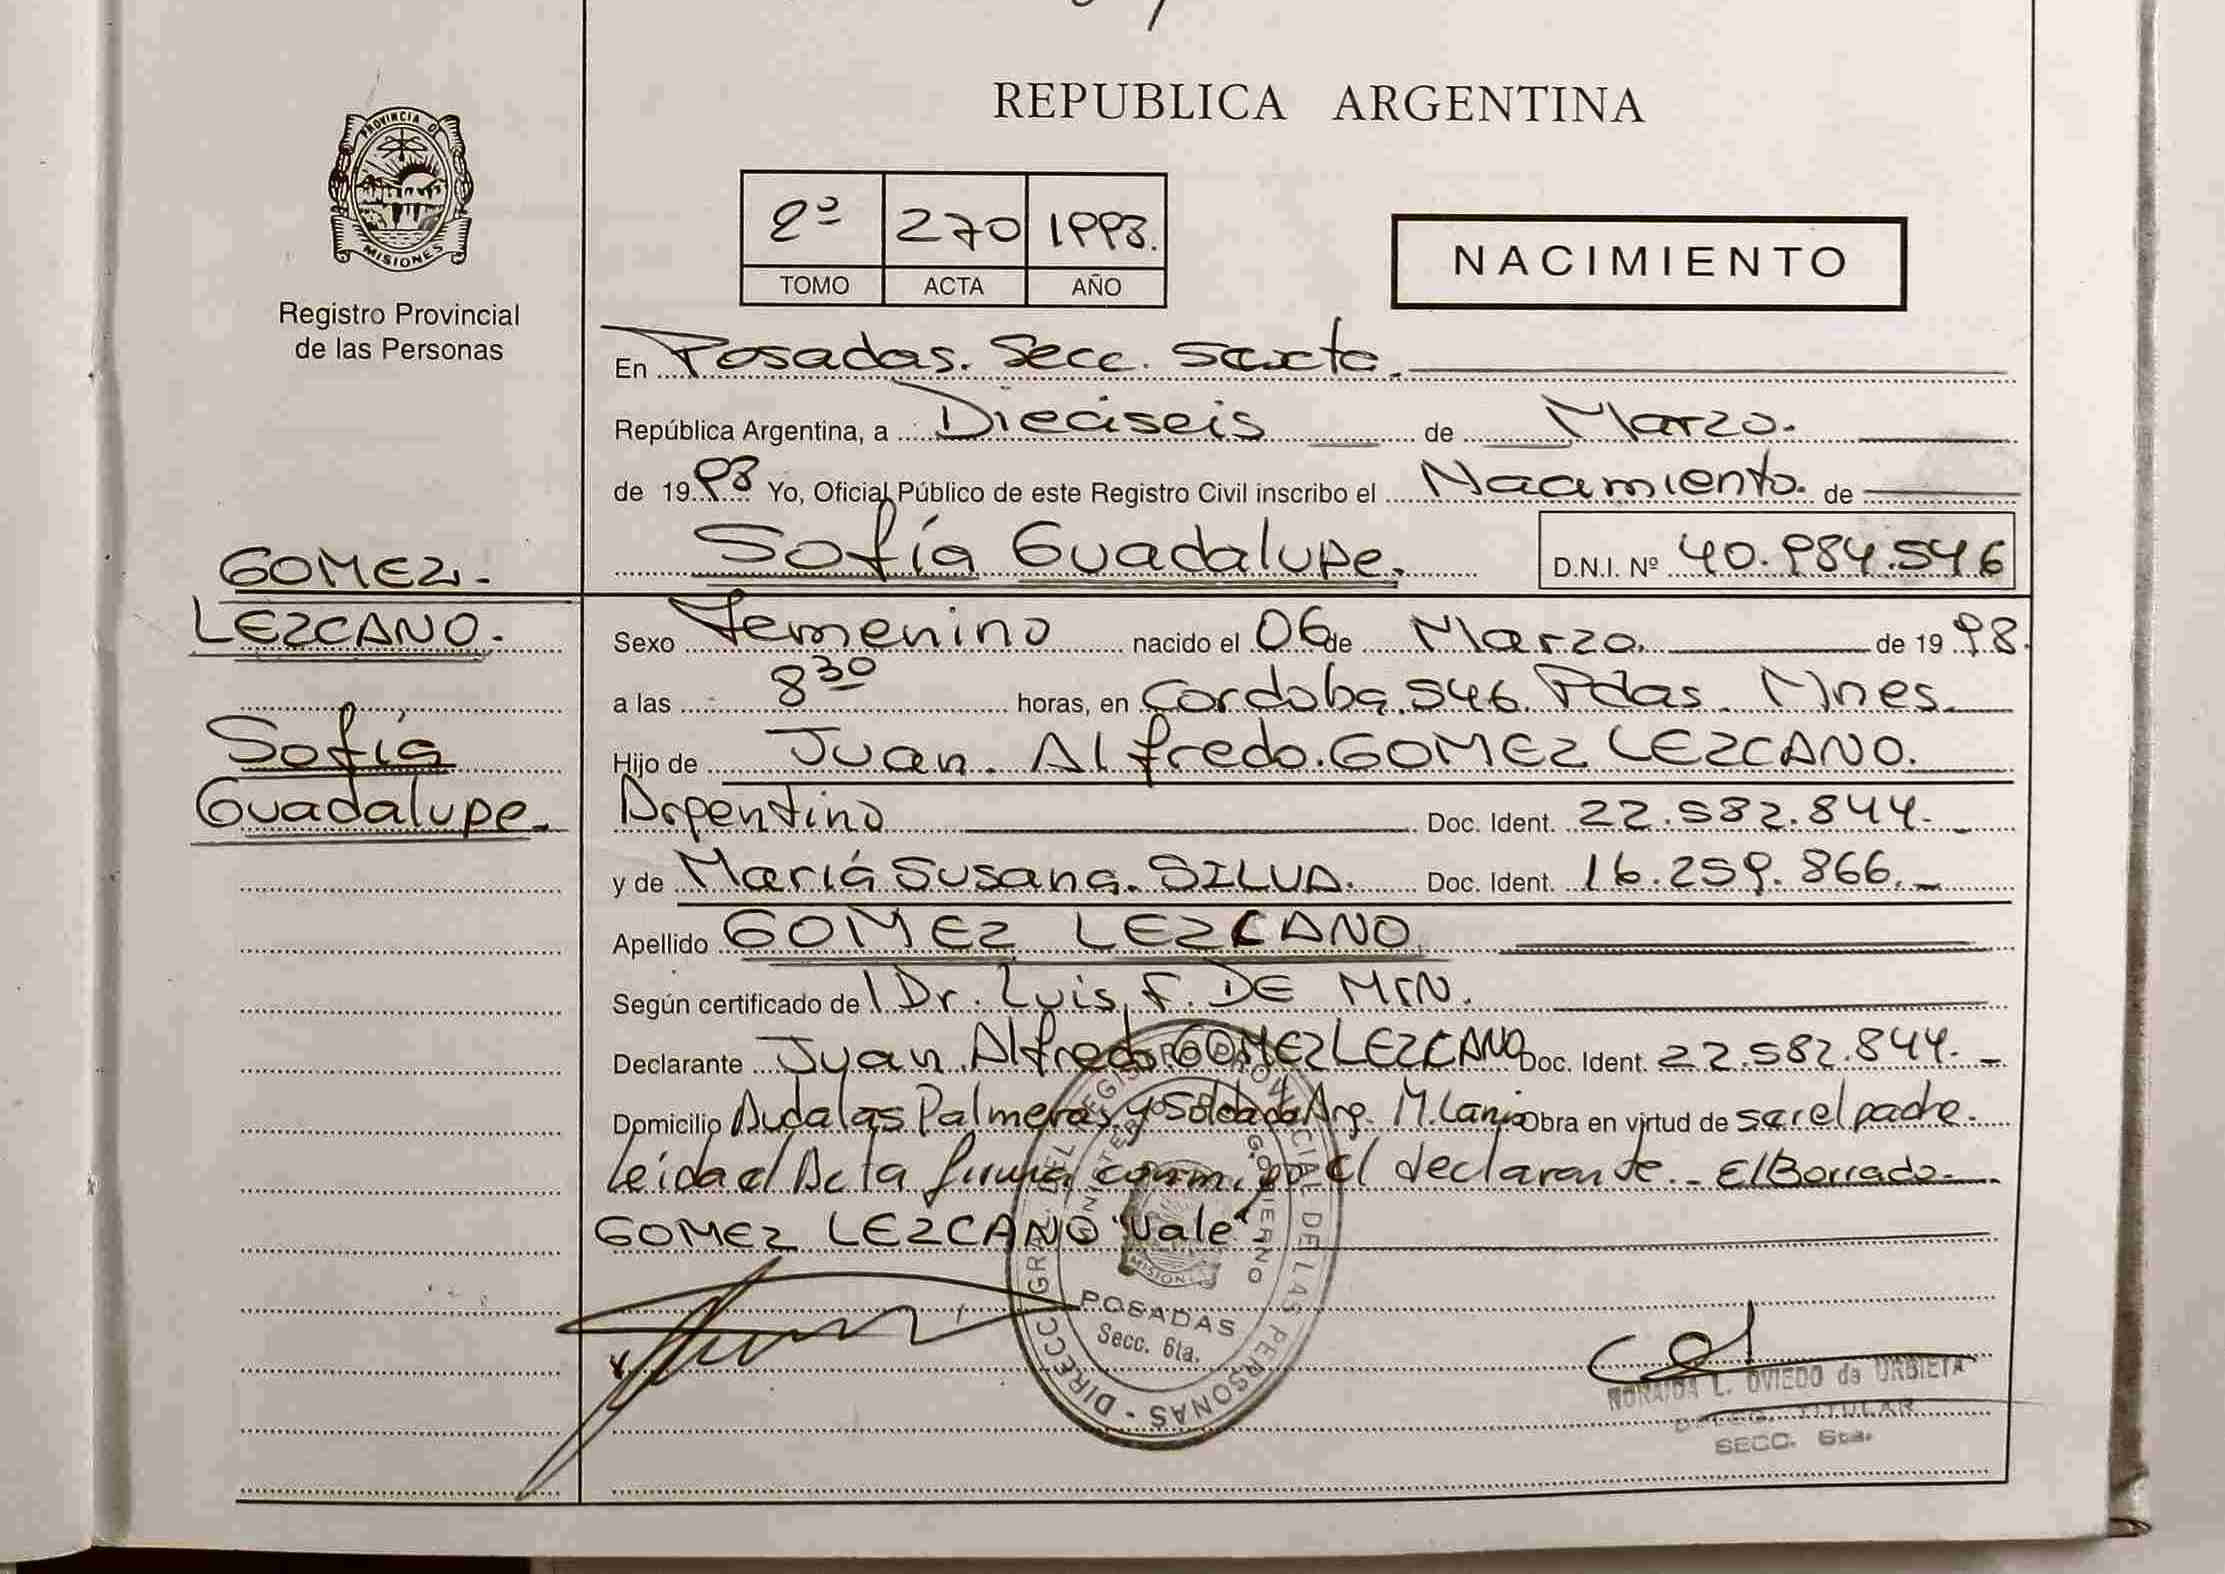 REPUBLICA ARGENTINA
PROVINCIA D
MISIONES
Registro Provincial
de las Personas
2º 270 1998.
TOMO ACTA AÑO
NACIMIENTO
En Posadas. Secc. Sexta.
República Argentina, a Dieciseis de Marzo.
de 1998 Yo, Oficial Público de este Registro Civil inscribo el Nacimiento. de
Sofía Guadalupe. D.N.I. Nº 40.984.546
GOMEZ.
LEZCANO.
Sofía
Guadalupe.
Sexo Femenino nacido el 06 de Marzo. de 1998.
a las 8 30 horas, en Cordoba. 546. Pdas. Mnes.
Hijo de Juan. Alfredo. GOMEZ LEZCANO.
Argentino Doc. Ident. 22.582.844.
y de Mariá Susana. SILVA. Doc. Ident. 16.259.866.
Apellido GOMEZ LEZCANO
Según certificado de Dr. Luis. F. DE MIN.
Declarante Juan Alfredo GOMEZ LEZCANO Doc. Ident. 22.582.844.
Domicilio Avda las Palmeras y Soldado Arg. M. Lanús Obra en virtud de ser el padre.
Leida el Acta firma conmigo el declarante. El Borrado.
GOMEZ LEZCANO "Vale"
DIRECC. GRAL. DEL REGISTRO PROVINCIAL DE LAS PERSONAS
GOBIERNO
MISIONES
POSADAS
Secc. 6ta.
L. OVIEDO de URBIETA
DELEG. TITULAR
SECC. 6ta.